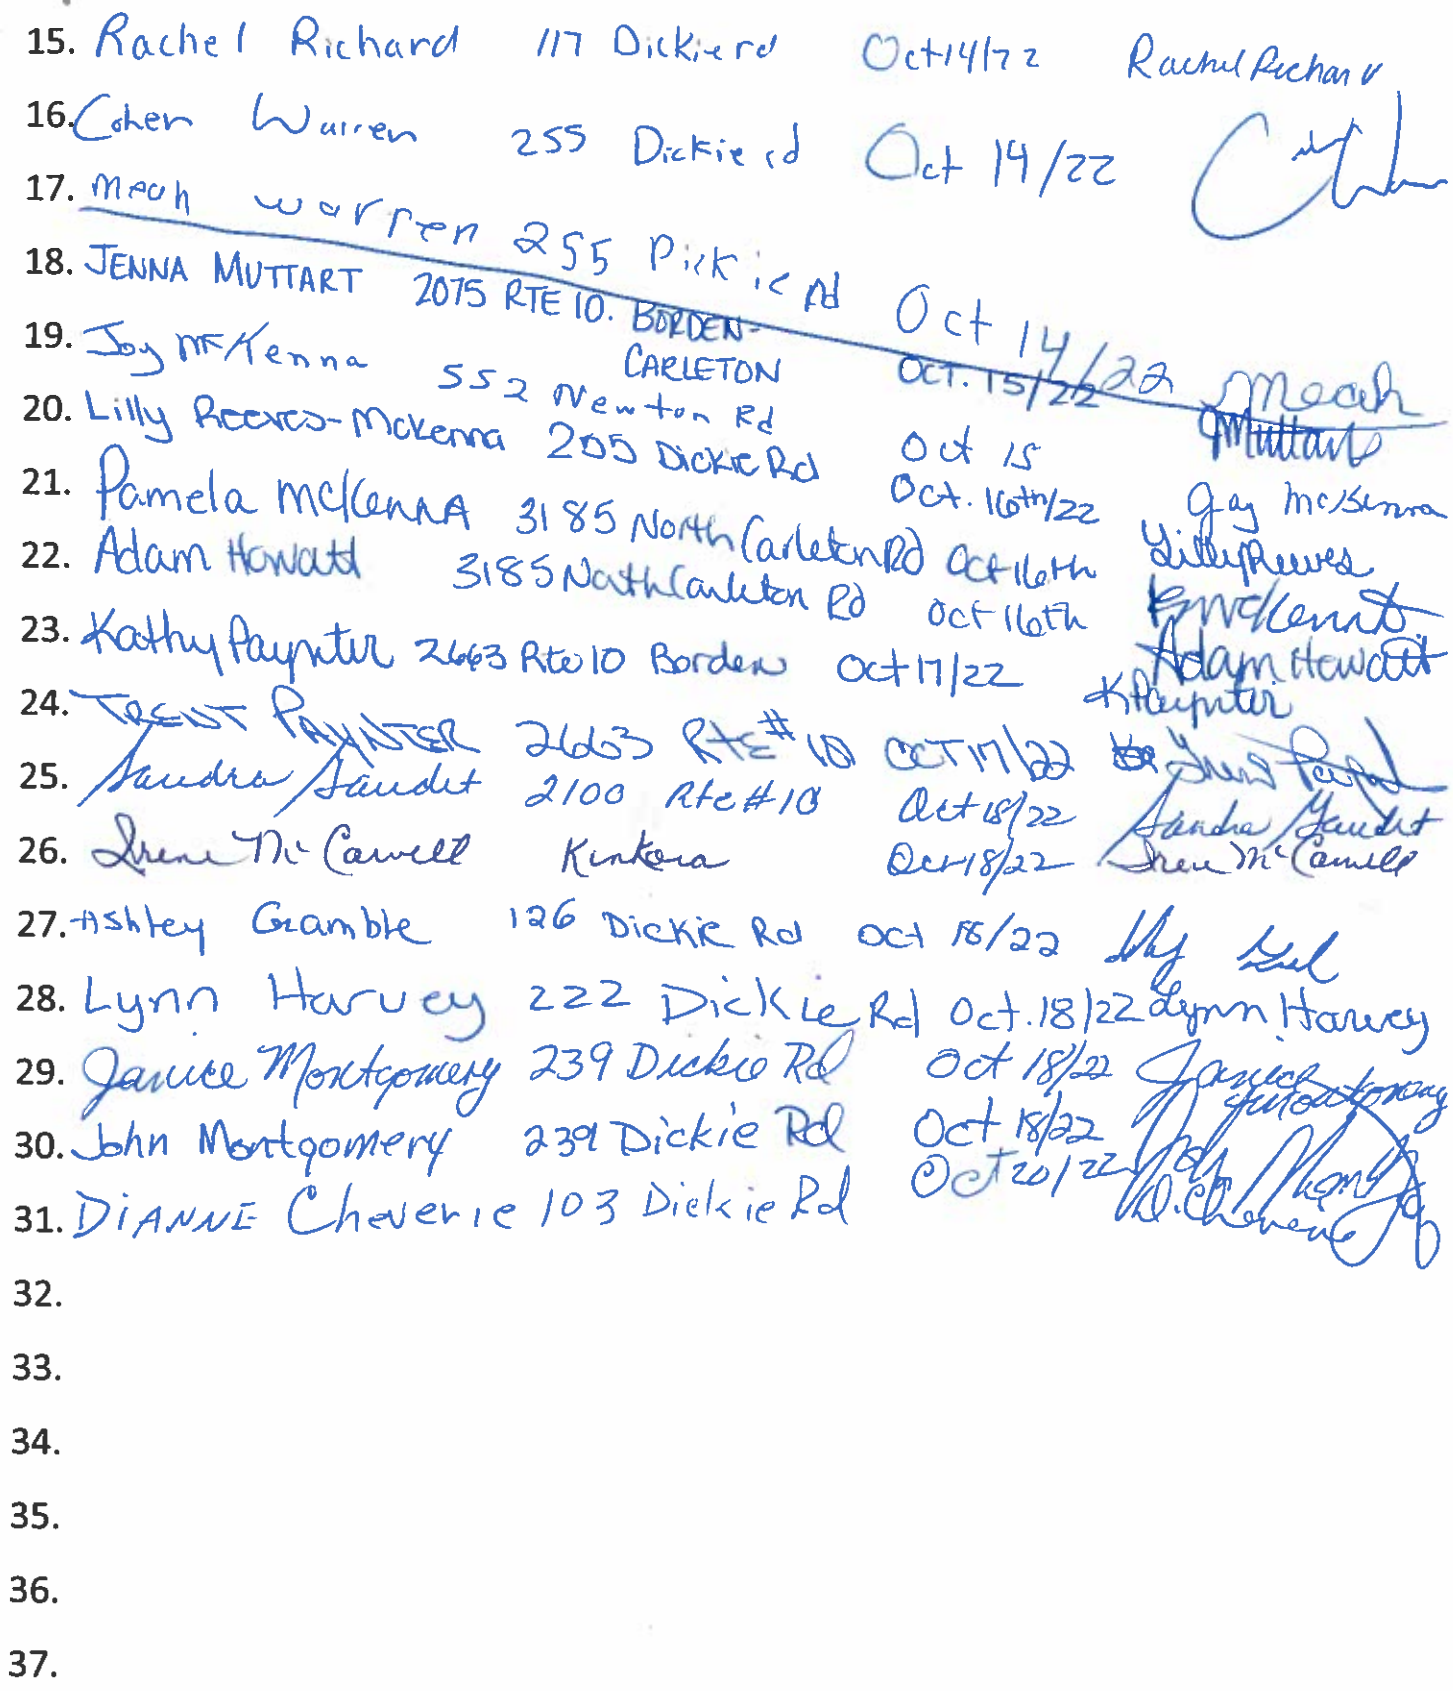 15. Rachel Richard 117 Dickie rd Oct 14/22 Rachel Richard
16. Cohen Warren 255 Dickie rd Oct 14/22
17. Meah Warren 255 Dickie Rd Oct 14/22 Meah
18. JENNA MUTTART 2075 RTE 10. BORDEN-CARLETON OCT. 15/22 JMuttart
19. Joy McKenna 552 Newton Rd Oct 15 Joy McKenna
20. Lilly Reeves-McKenna 205 Dickie Rd Oct. 16th/22 Lilly Reeves
21. Pamela McKenna 3185 North Carleton Rd Oct 16th PMcKenna
22. Adam Howatt 3185 North Carleton Rd Oct 16th Adam Howatt
23. Kathy Paynter 2663 Rte 10 Borden Oct 17/22 K Paynter
24. TRENT PAYNTER 2663 RTE #10 OCT 17/22 Trent
25. Sandra Gaudet 2100 Rte #10 Oct 18/22 Sandra Gaudet
26. Irene McCarvell Kinkora Oct 18/22 Irene McCarvell
27. Ashley Gamble 126 Dickie Rd Oct 18/22
28. Lynn Harvey 222 Dickie Rd Oct. 18/22 Lynn Harvey
29. Janice Montgomery 239 Dickie Rd Oct 18/22 Janice Montgomery
30. John Montgomery 239 Dickie Rd Oct 18/22
31. DIANNE Cheverie 103 Dickie Rd Oct 20/22 D. Cheverie
32.
33.
34.
35.
36.
37.